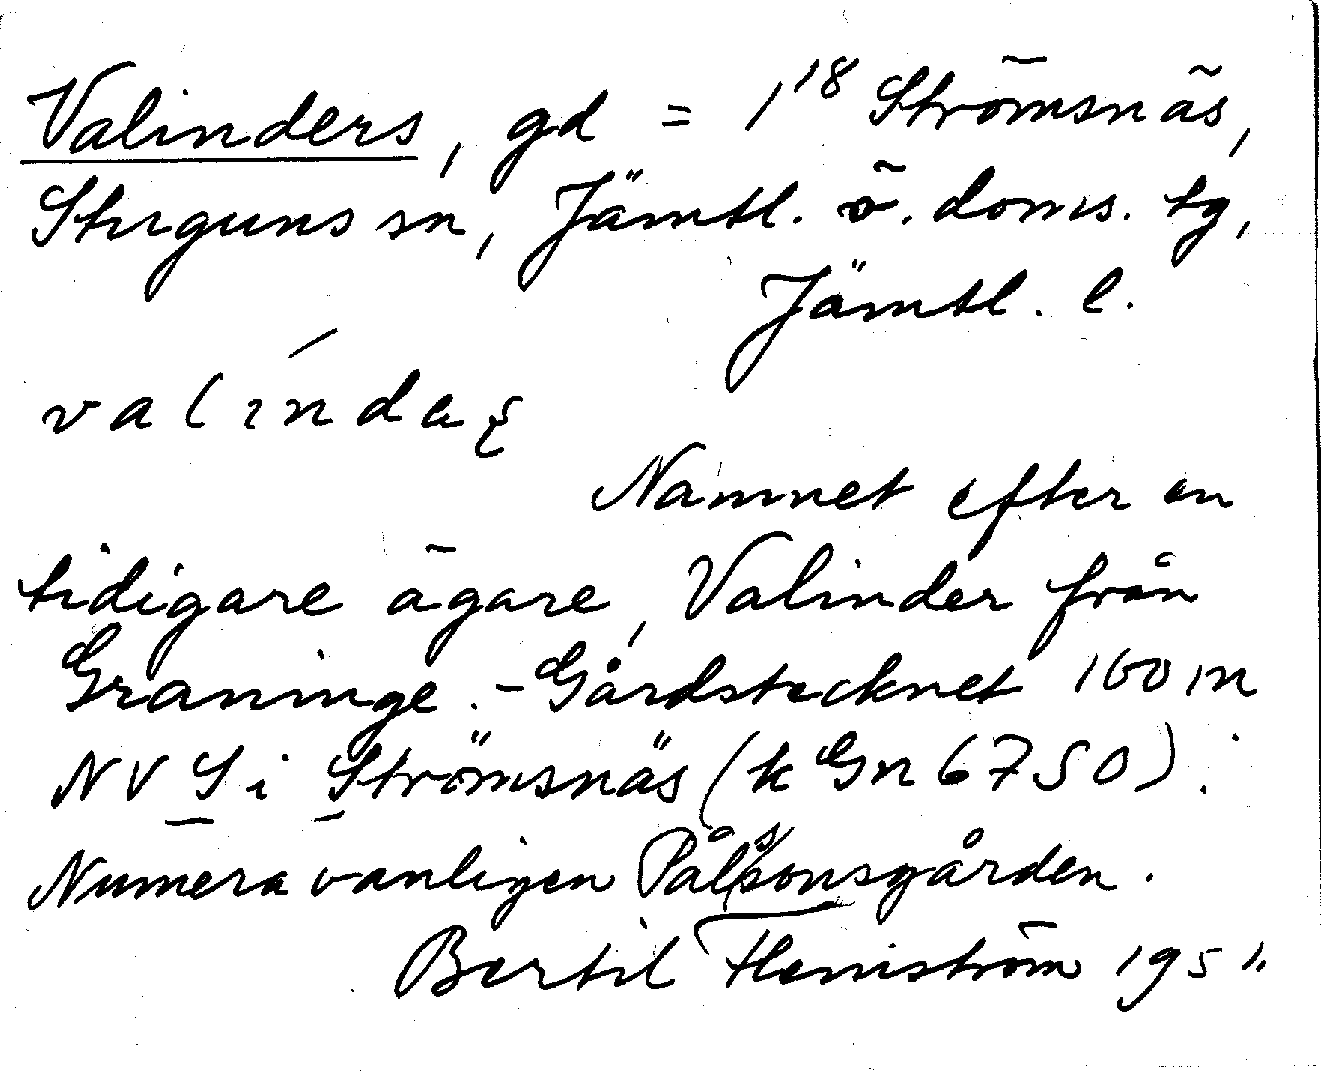 Valinders, gd = 1¹⁸ Strömsnäs,
Stuguns sn, Jämtl. ö. doms. tg,
Jämtl. l.
valindaş
Namnet efter en
tidigare ägare, Valinder från
Graninge. - Gårdstecknet 160 m
NV S i Strömsnäs (k Gn 6750).
Numera vanligen Pålsonsgården.
Bertil Flemström 1951.